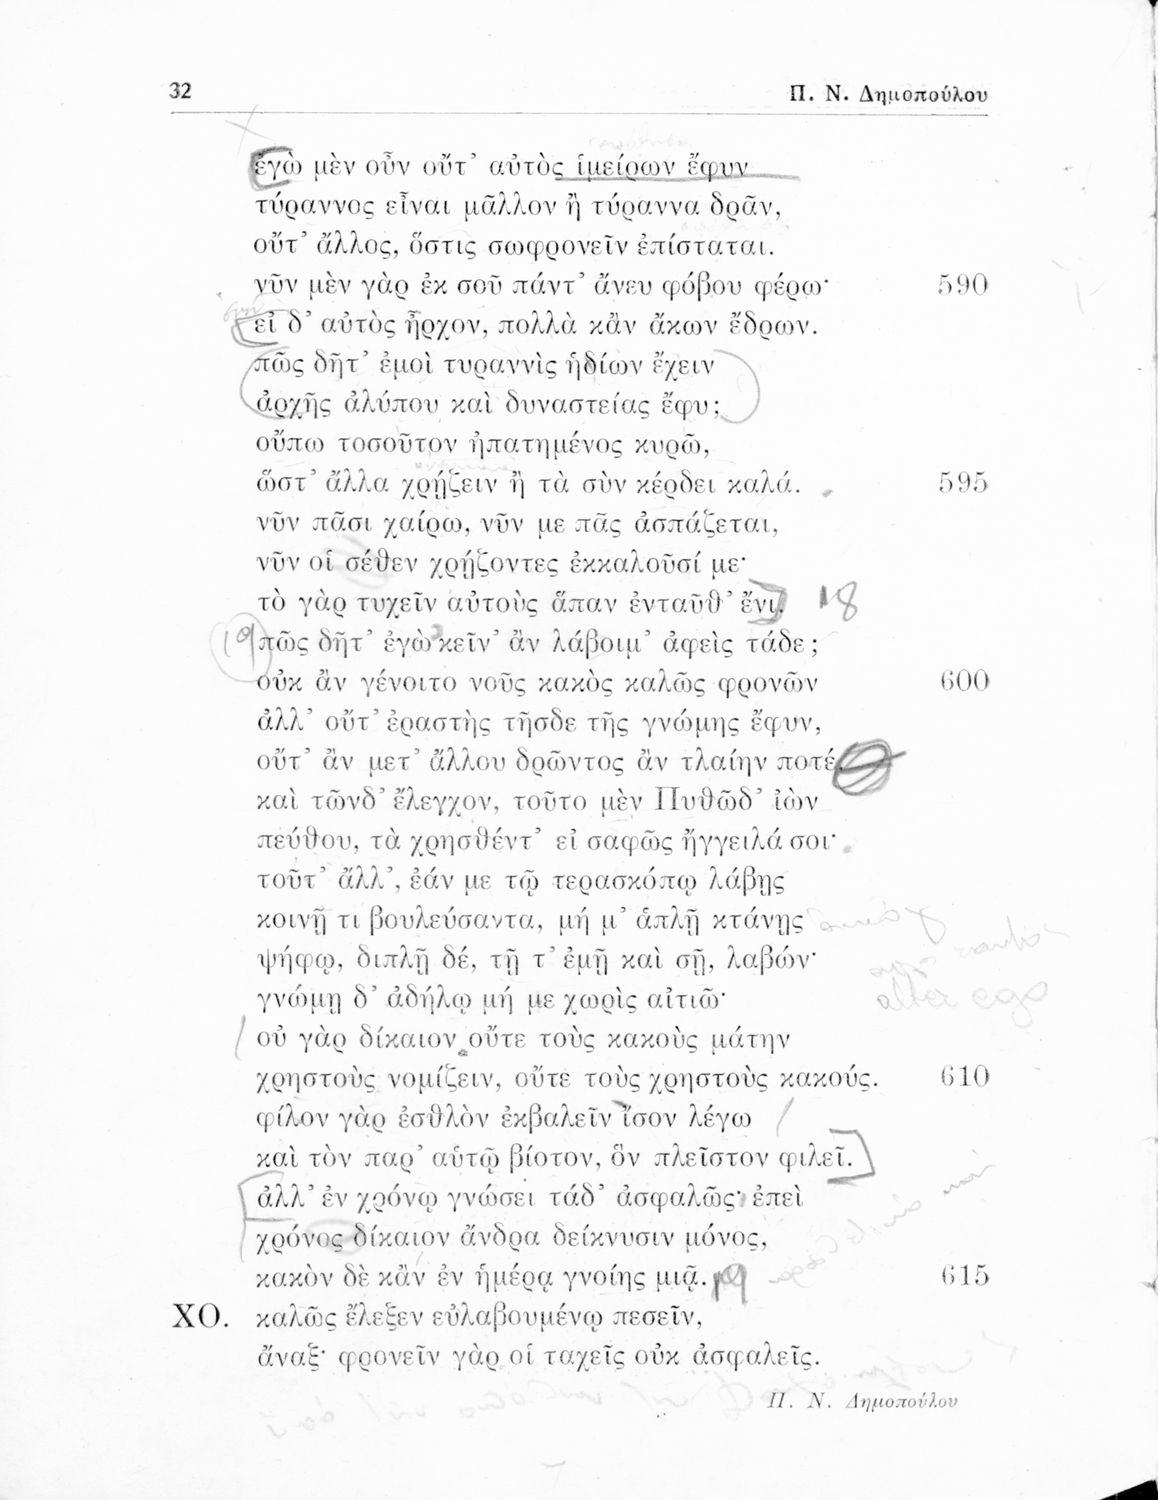 32 Π. Ν. Δημοπούλου
ἐγὼ μὲν οὖν οὔτ᾽ αὐτὸς ἱμείρων ἔφυν
τύραννος εἶναι μᾶλλον ἢ τύραννα δρᾶν,
οὔτ᾽ ἄλλος, ὅστις σωφρονεῖν ἐπίσταται.
νῦν μὲν γὰρ ἐκ σοῦ πάντ᾽ ἄνευ φόβου φέρω· 590
εἰ δ᾽ αὐτὸς ἦρχον, πολλὰ κἂν ἄκων ἔδρων.
πῶς δῆτ᾽ ἐμοὶ τυραννὶς ἡδίων ἔχειν
ἀρχῆς ἀλύπου καὶ δυναστείας ἔφυ;
οὔπω τοσοῦτον ἠπατημένος κυρῶ,
ὥστ᾽ ἄλλα χρῄζειν ἢ τὰ σὺν κέρδει καλά. 595
νῦν πᾶσι χαίρω, νῦν με πᾶς ἀσπάζεται,
νῦν οἱ σέθεν χρῄζοντες ἐκκαλοῦσί με·
τὸ γὰρ τυχεῖν αὐτοὺς ἅπαν ἐνταῦθ᾽ ἔνι. 18
19 πῶς δῆτ᾽ ἐγὼ κεῖν᾽ ἂν λάβοιμ᾽ ἀφεὶς τάδε;
οὐκ ἂν γένοιτο νοῦς κακὸς καλῶς φρονῶν 600
ἀλλ᾽ οὔτ᾽ ἐραστὴς τῆσδε τῆς γνώμης ἔφυν,
οὔτ᾽ ἂν μετ᾽ ἄλλου δρῶντος ἂν τλαίην ποτέ.
καὶ τῶνδ᾽ ἔλεγχον, τοῦτο μὲν Πυθῶδ᾽ ἰὼν
πεύθου, τὰ χρησθέντ᾽ εἰ σαφῶς ἤγγειλά σοι·
τοῦτ᾽ ἄλλ᾽, ἐάν με τῷ τερασκόπῳ λάβῃς
κοινῇ τι βουλεύσαντα, μή μ᾽ ἁπλῇ κτάνῃς
ψήφῳ, διπλῇ δέ, τῇ τ᾽ ἐμῇ καὶ σῇ, λαβών·
γνώμῃ δ᾽ ἀδήλῳ μή με χωρὶς αἰτιῶ·
alter ego
οὐ γὰρ δίκαιον οὔτε τοὺς κακοὺς μάτην
χρηστοὺς νομίζειν, οὔτε τοὺς χρηστοὺς κακούς. 610
φίλον γὰρ ἐσθλὸν ἐκβαλεῖν ἴσον λέγω
καὶ τὸν παρ᾽ αὑτῷ βίοτον, ὃν πλεῖστον φιλεῖ.
ἀλλ᾽ ἐν χρόνῳ γνώσει τάδ᾽ ἀσφαλῶς· ἐπεὶ
χρόνος δίκαιον ἄνδρα δείκνυσιν μόνος,
κακὸν δὲ κἂν ἐν ἡμέρᾳ γνοίης μιᾷ. 19 615
ΧΟ. καλῶς ἔλεξεν εὐλαβουμένῳ πεσεῖν,
ἄναξ· φρονεῖν γὰρ οἱ ταχεῖς οὐκ ἀσφαλεῖς.
Π. Ν. Δημοπούλου